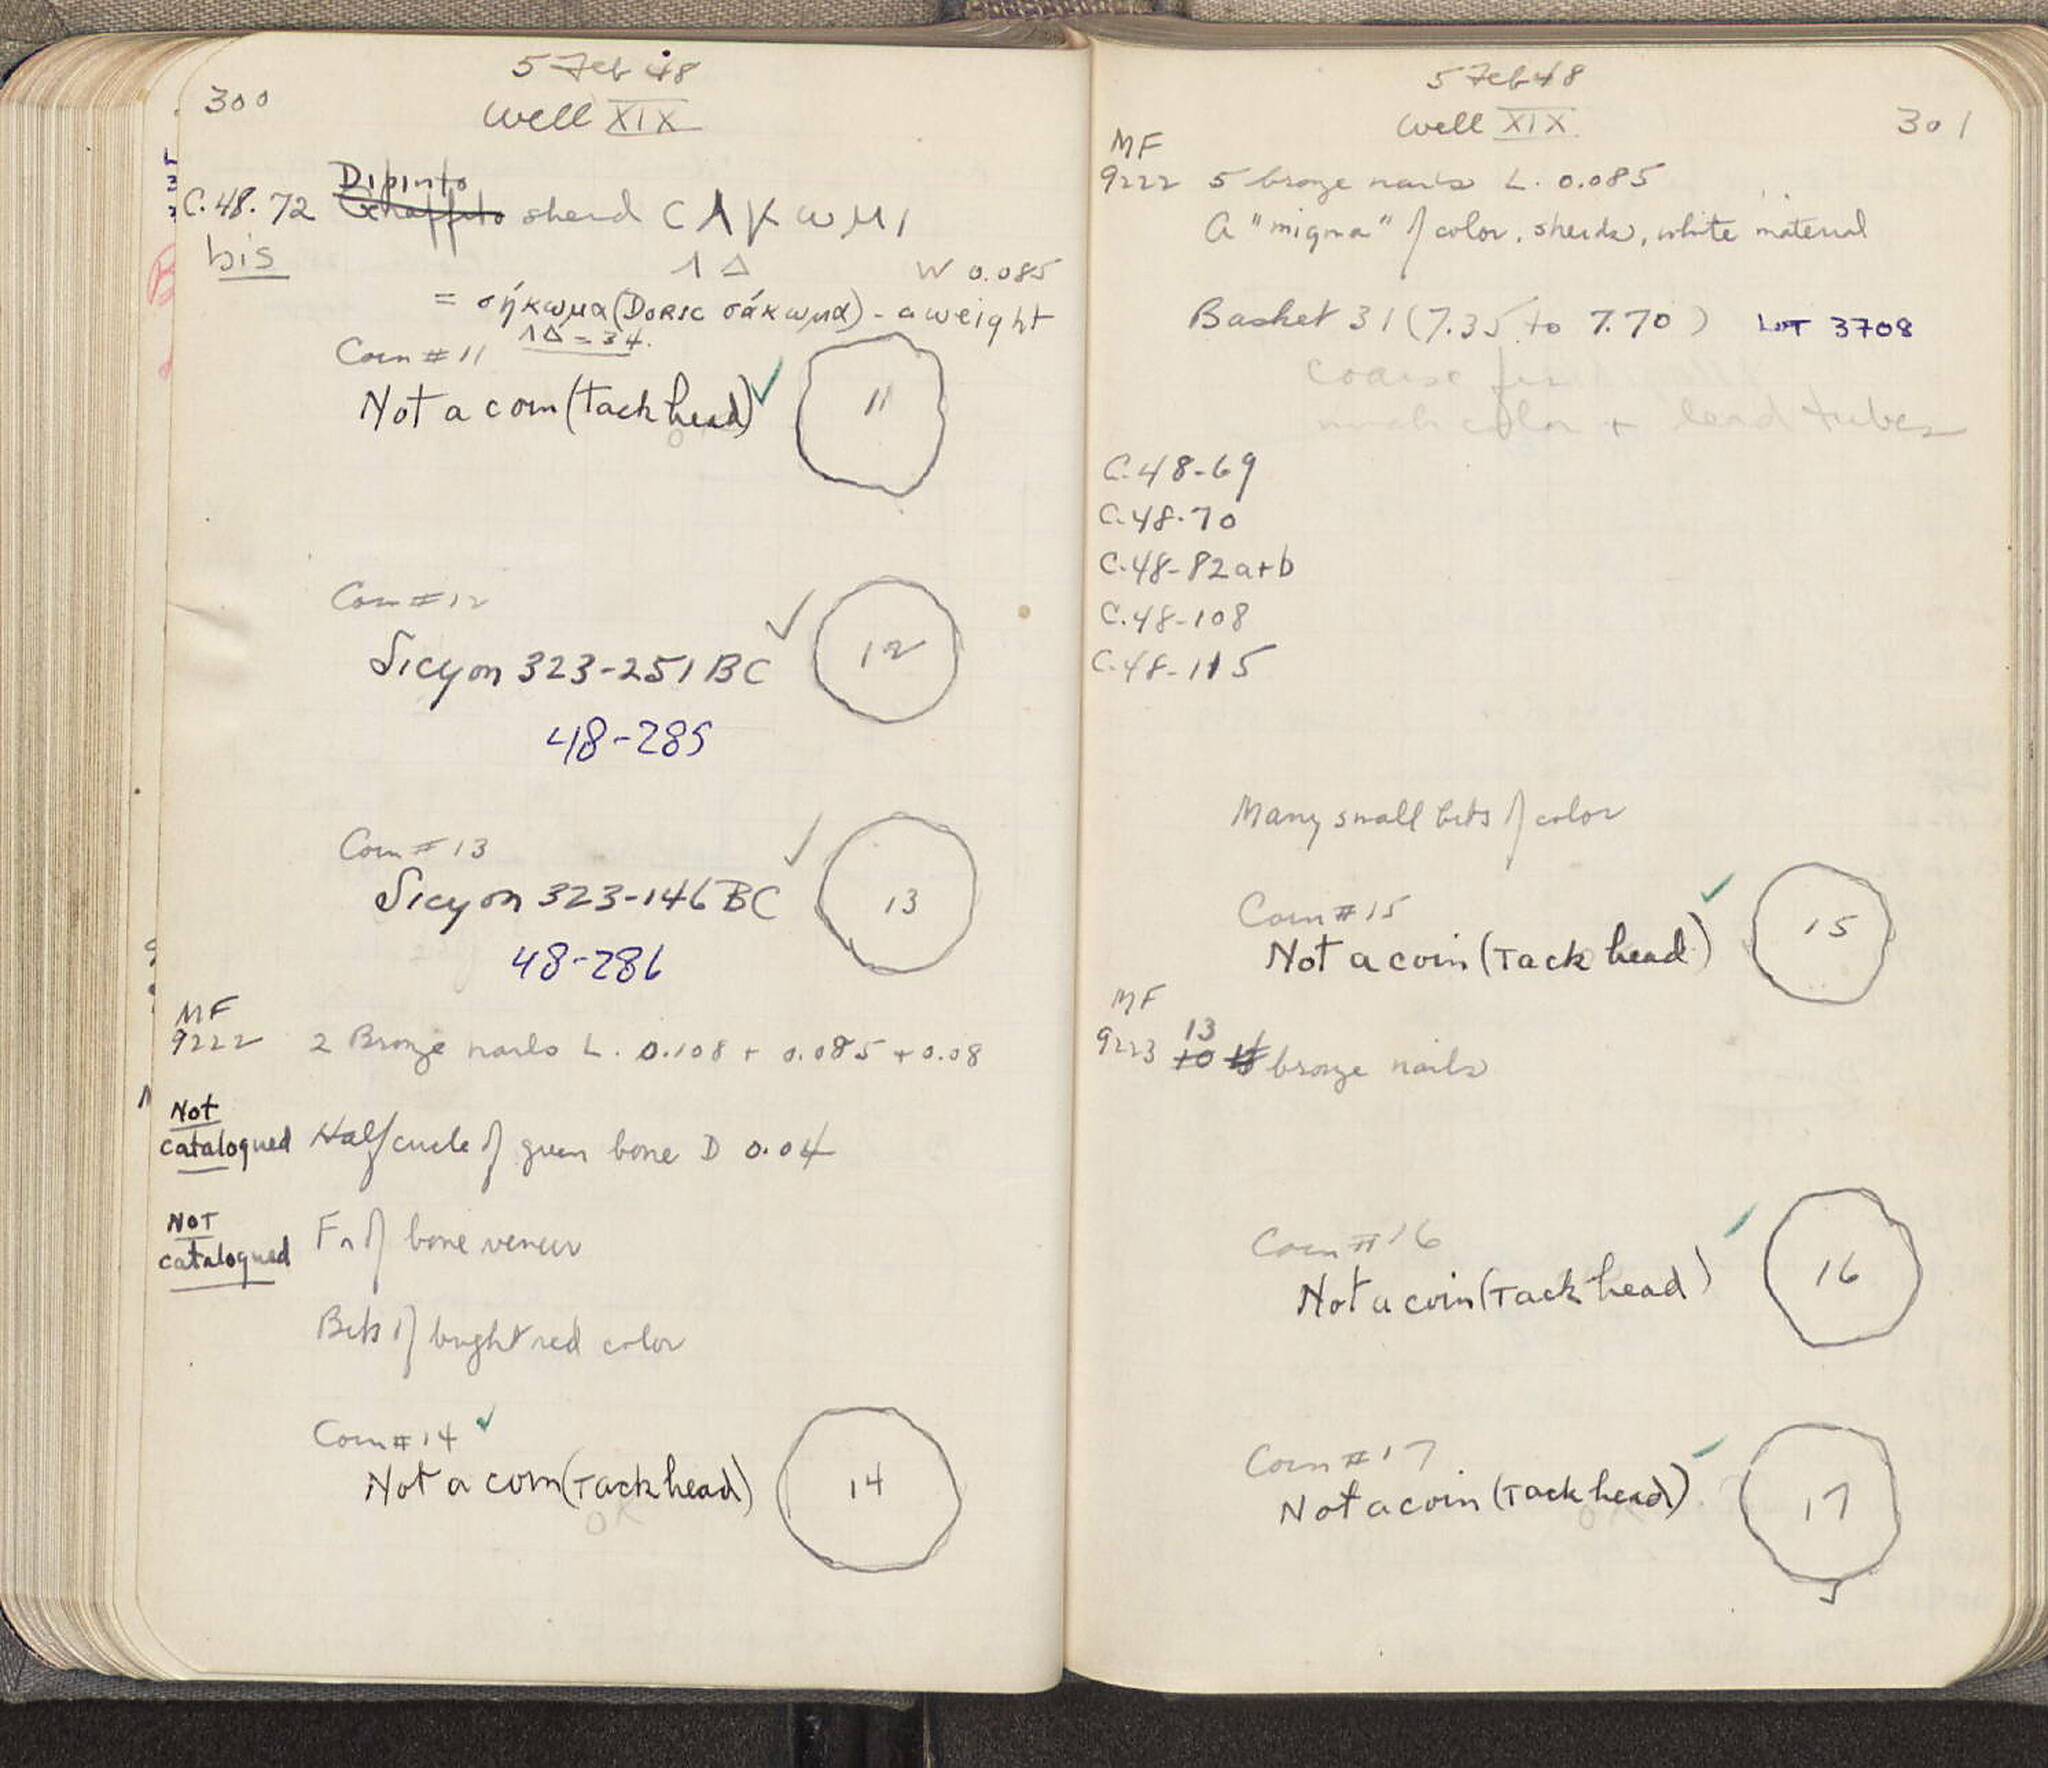 300
5 Feb 48
Well XIX
Dipinto
C.48.72 Graffito sherd C Λ K ω M I
bis
Λ Δ W 0.085
= σήκωμα (DORIC σάκωμα) - a weight
ΛΔ = 34.
Coin #11
Not a coin (tack head) ✓
11
Coin #12
✓
Sicyon 323-251 BC
12
48-285
Coin #13
✓
Sicyon 323-146 BC
13
48-286
MF
9222 2 Bronze nails L. 0.108 + 0.085 + 0.08
Not
catalogued Half circle of green bone D 0.04
NOT
catalogued Fr of bone veneer
Bits of bright red color
Coin #14 ✓
Not a coin (Tack head)
14
OK
5 Feb 48
Well XIX
301
MF
9222 5 bronze nails L. 0.085
A "migma" of color, sherds, white material
Basket 31 (7.35 to 7.70) LOT 3708
coarse
much color + lead tubes
C.48-69
C.48-70
C.48-82a+b
C.48-108
C.48-115
Many small bits of color
Coin #15 ✓
Not a coin (Tack head)
15
MF
13
9223 10 bronze nails
Coin #16 ✓
Not a coin (Tack head)
16
Coin #17 ✓
Not a coin (Tack head)
17